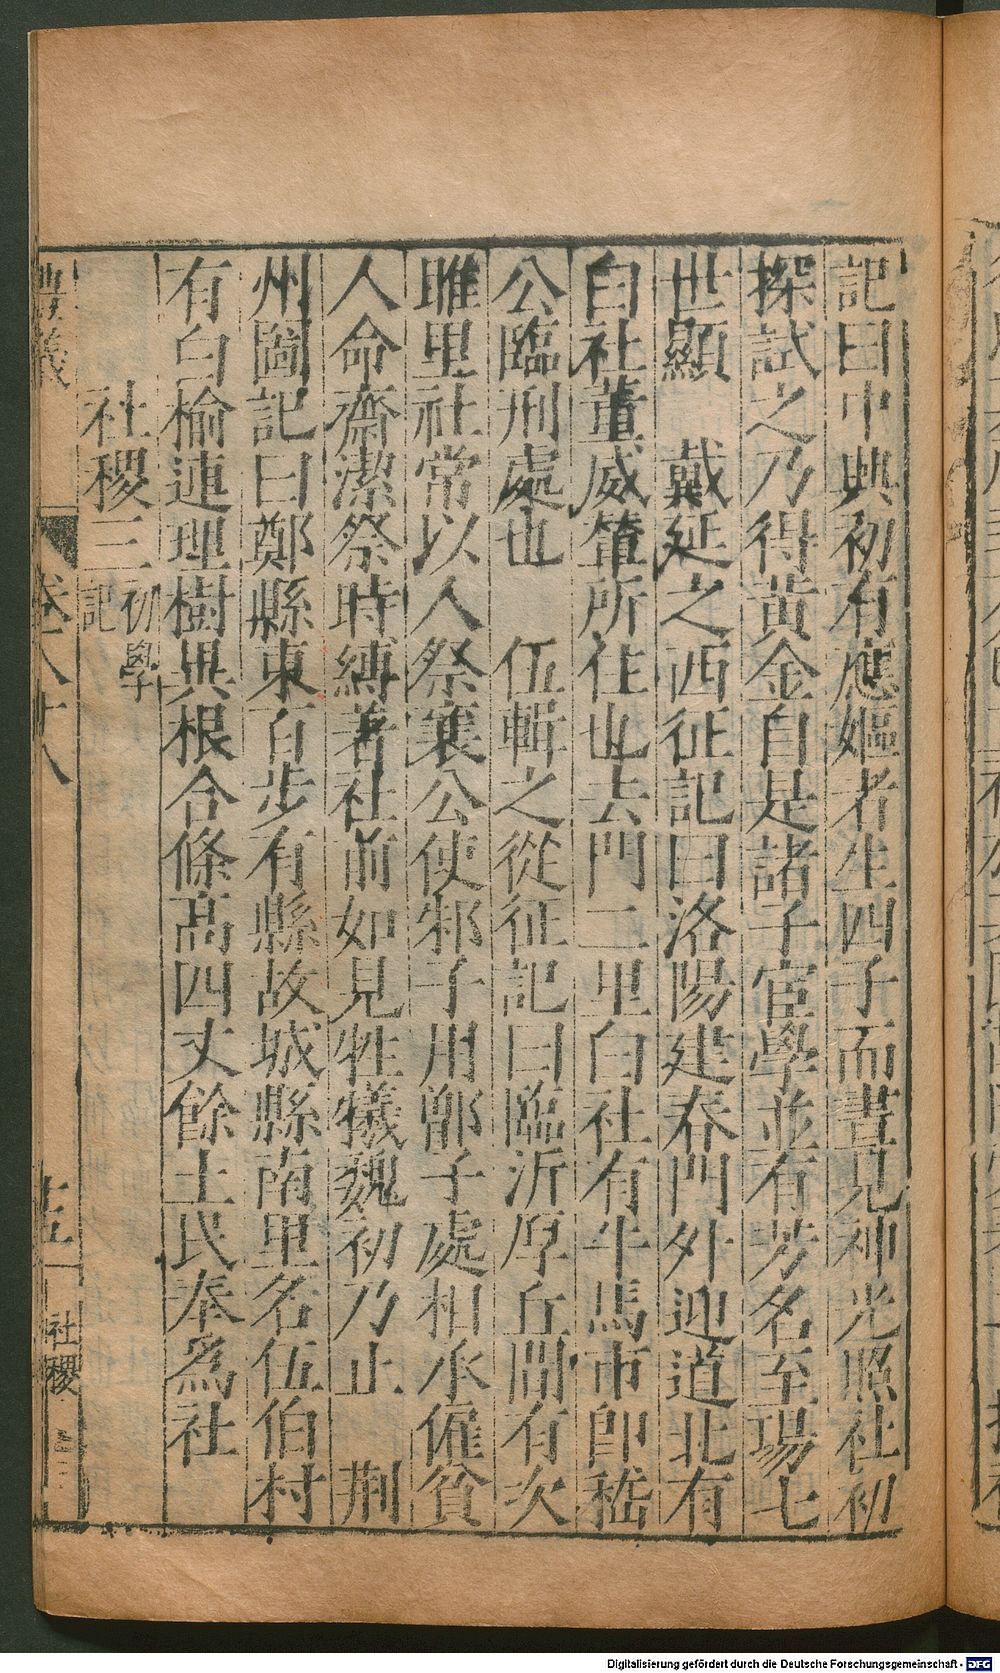 記曰中興初有應嫗者生四子而晝見神光照社初
探試之乃得黃金自是諸子宦學並有芳名至瑒七
世顯　戴延之西征記曰洛陽建春門外迎道北有
白社董威輦所住也去門二里白社有牛馬市即嵇
公臨刑處也　伍輯之從征記曰臨沂厚丘間有次
雎里社常以人祭襄公使邾子用鄫子處相承雇貧
人命齋潔祭時縛著社前如見牲犧魏初乃止　荆
州圖記曰鄭縣東百步有縣故城縣南里名伍伯村
有白榆連理樹異根合條高四丈餘土民奉爲社
社稷三初學記
卷八十八
十五
社稷
Digitalisierung gefördert durch die Deutsche Forschungsgemeinschaft - DFG